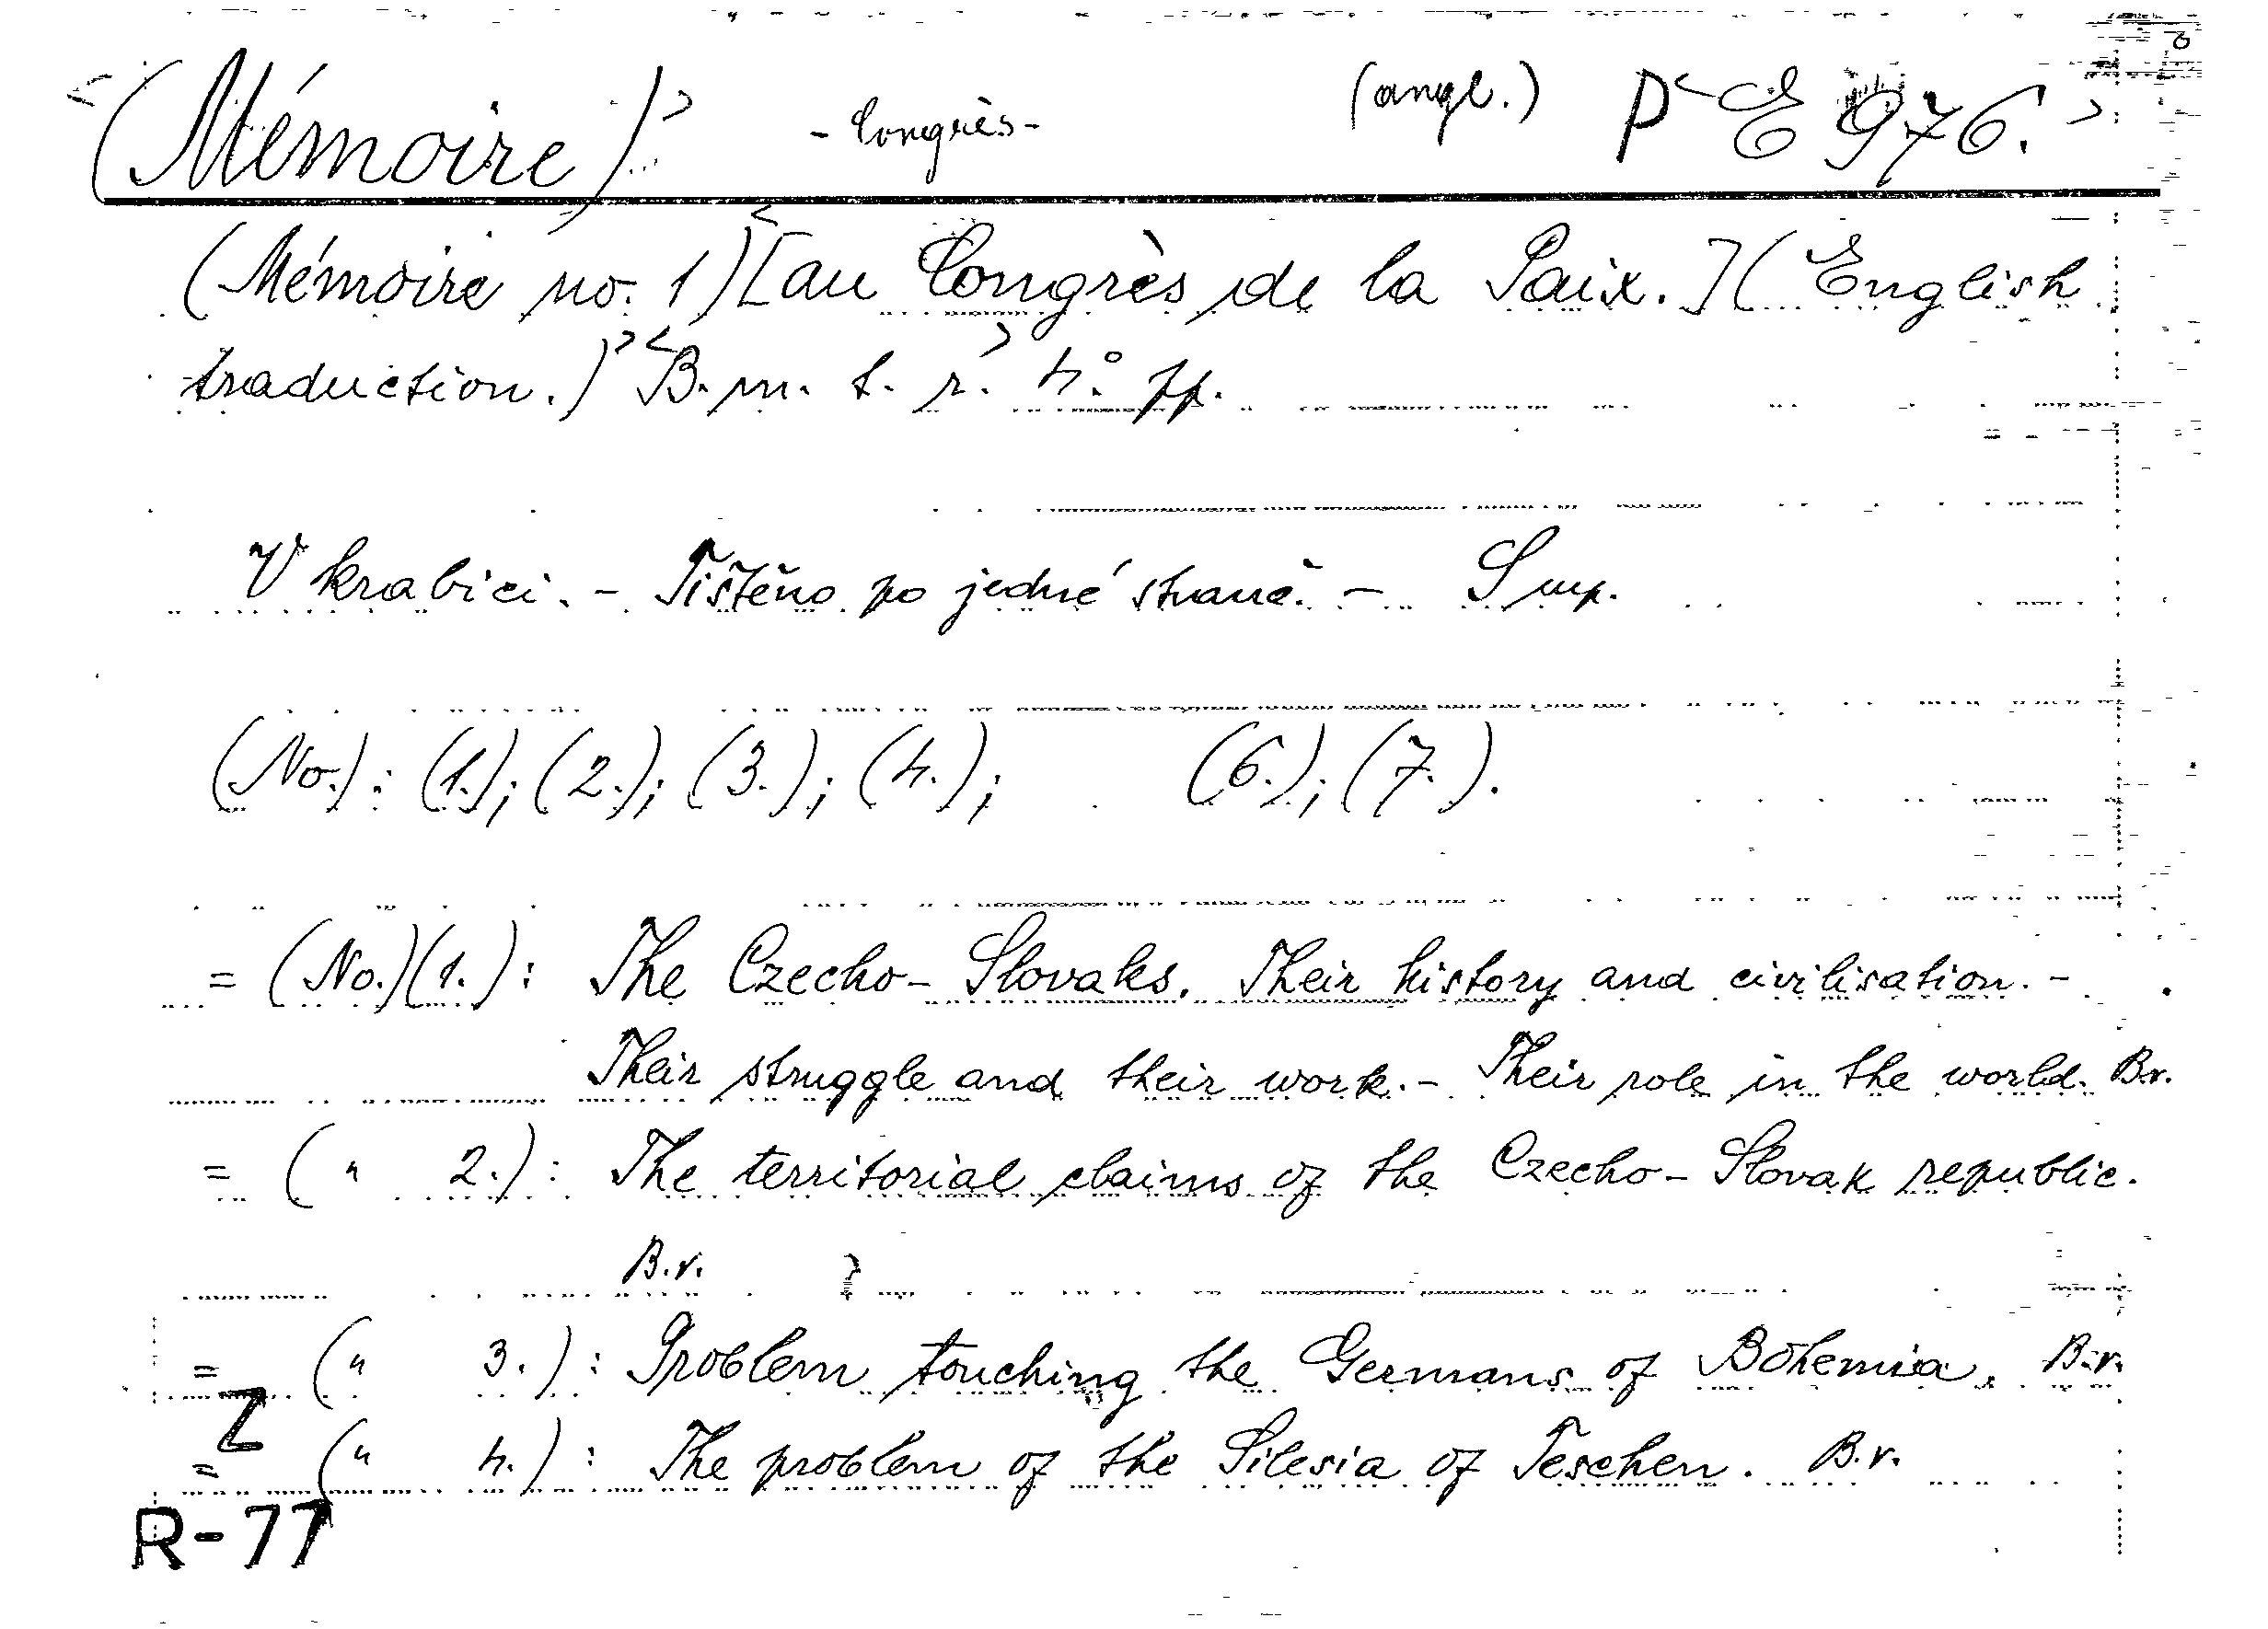 <(Mémoire)> - Congrès - (angl.) P<E 976.>
(Mémoire no. 1)<[au Congrès de la Paix.](English
traduction.)><B. m. t. r.> 4° pp.
V krabici. - Tištěno po jedné straně. - Smp.
(No.): (1.); (2.); (3.); (4.); (6.); (7.).
= (No.)(1.): The Czecho-Slovaks. Their history and civilisation. -
Their struggle and their work. - Their role in the world. B.r.
= ( " 2.): The territorial claims of the Czecho-Slovak republic.
B.r.
= ( " 3.): Problem touching the Germans of Bohemia. B.r.
Z
= ( " 4.): The problem of the Silesia of Teschen. B.r.
R-77